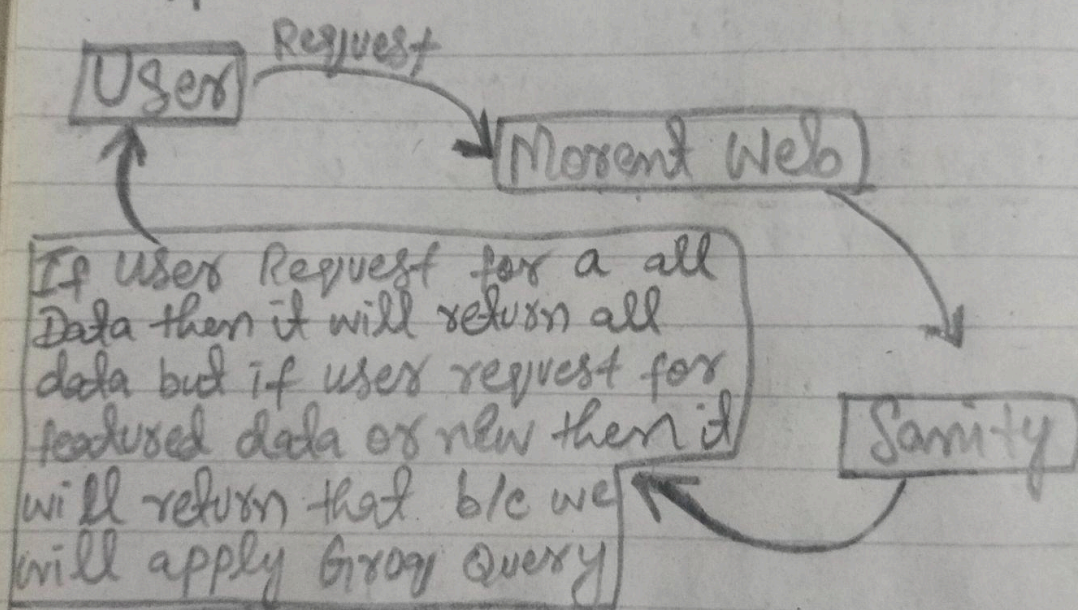 User
Request
Morent Web
Sanity
If user Request for a all
Data then it will return all
data but if user request for
featured data or new then it
will return that b/c we
will apply Groq Query